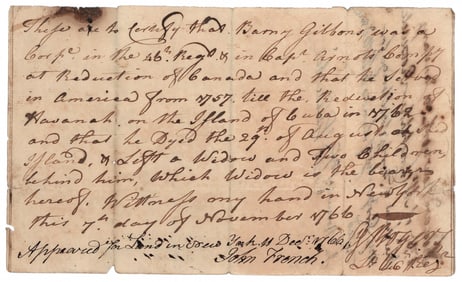 These are to Certefy that Barny Gibbons was a
Corpl. in the 46th. Regt. & in Capt. Arnots Compy
at Reduction of Canada and that he Served
in America from 1757 till the Reduction of
Havanah on the Island of Cuba in 1762
and that he Dyed the 29th. of August at Sd
Island, & Left a Widow and Two Children
behind him, Which Widow is the bearer
hereof. Wittness my hand in New York
this 7th day of November 1766
Approved for Land in New York 11 Decr. 1766
John French.